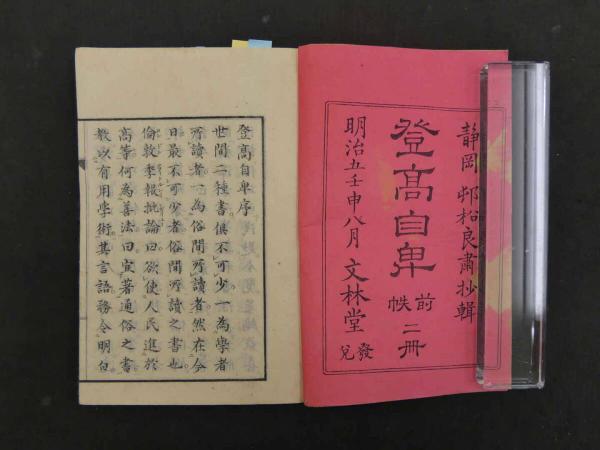 静岡 邨松良肅抄輯
登高自卑
前帙 二冊
明治五壬申八月 文林堂 發兌
登高自卑序
世間二種書俱不可少一為學者
所讀者一為俗間所讀者然在今
日最不可少者俗間所讀之書也
倫敦季報批論曰欲使人民進於
高等何為善法曰宜著通俗之書
教以有用學術其言語務令明白